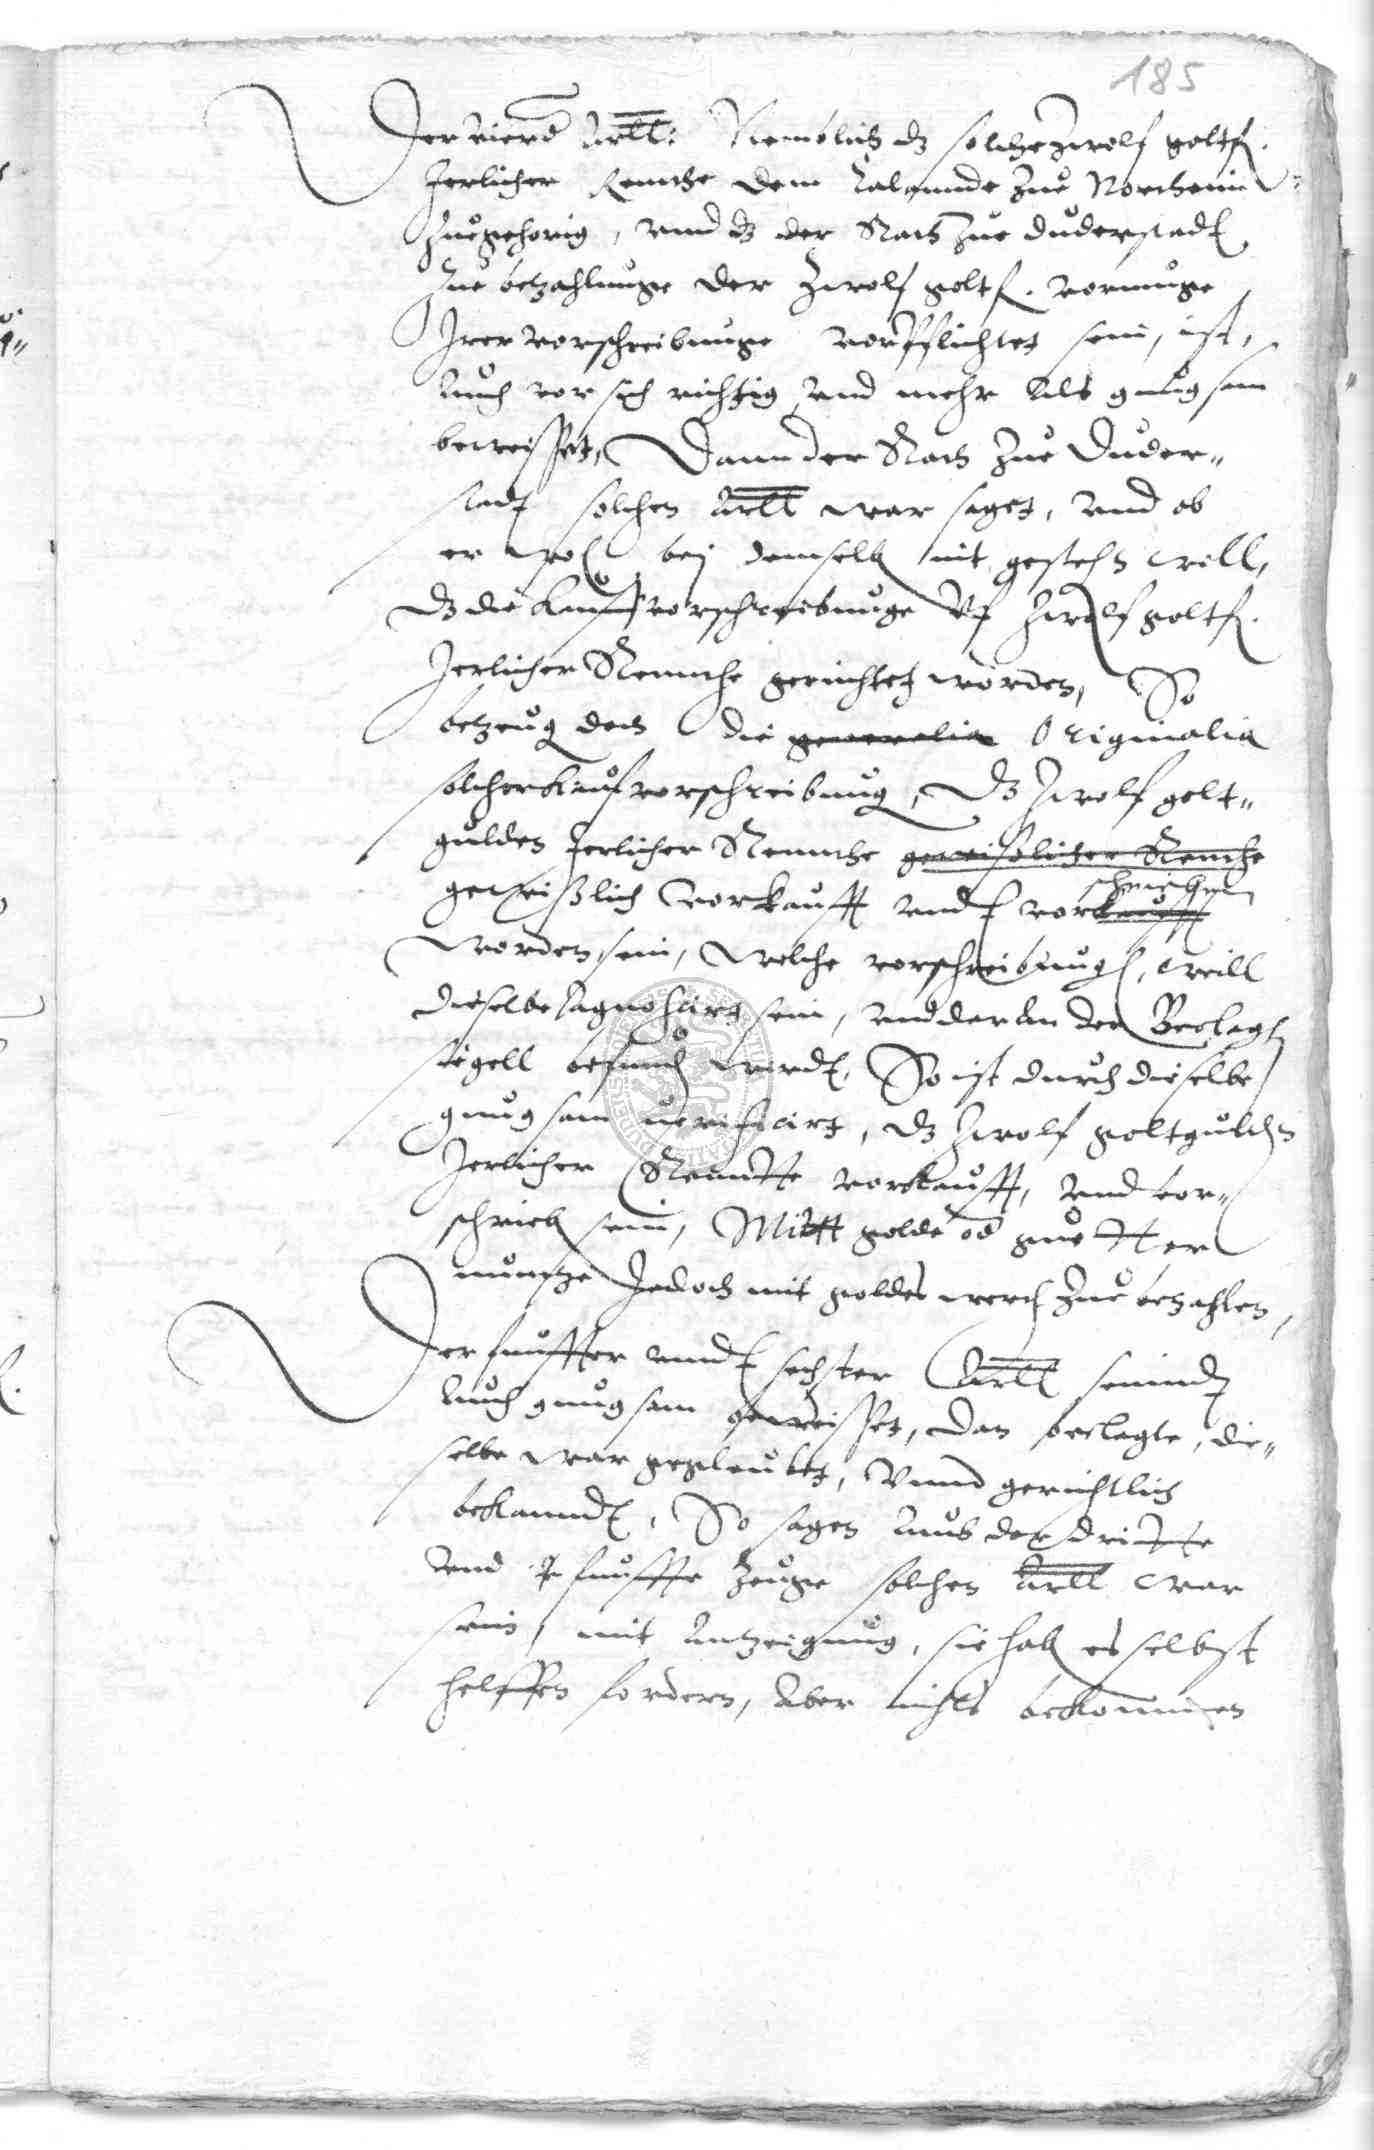 185
Der vierd Artll: Nemblich dz solche zwolf goltfl.
Jerlicher Renthe dem Calannde zue Northeim
zuegehorig, vnnd dz der Rath zue duderstadt
zue betzahlunge der zwolf goltfl. vormuge
Irer vorschreibunge vorpflichtet sein, ist,
Auch vor sich richtig vnd mehr als gnugsam
beweisset, Dann der Rath zue Duder-
stadt solchen Artll war saget, vnd ob
er wol bej demselben nit gestehen will,
dz die kauffvorschreibunge vf zwolf goltfl.
Jerlicher Rennthe gerichtet worden, So
betzeug doch die generalia Originalia
solcher kaufvorschreibung, dz zwolf golt-
gulden Jerlicher Rennthe gewißlicher Renthe
gewißlich vorkaufft vndt vorkaufft schrieben
worden sein, welche vorschreibung, weill
dieselbe Agnosciert sein, vnd daran der Beclagten
siegell befunden werden, So ist durch dieselbe
gnugsam verificirt, dz zwolf goltgulden
Jerlicher Renntte vorkaufft, vnd vor-
schrieben sein, Mitt golde od guetter
muntze Jedoch mit goldes werd zue betzahlen,
Der funffter vnndt sechster Artll seinndt
Auch gnugsam beweisset, dan beclagte, die-
selbe war geglaubet, Vnnd gerichtlich
bekanndt, So sagen Auch der dritte
vnd funffte Zeuge solchen Artll war
sein, mit Antzeigung, sie haben es selbst
helffen fordern, Aber nichts bekommen